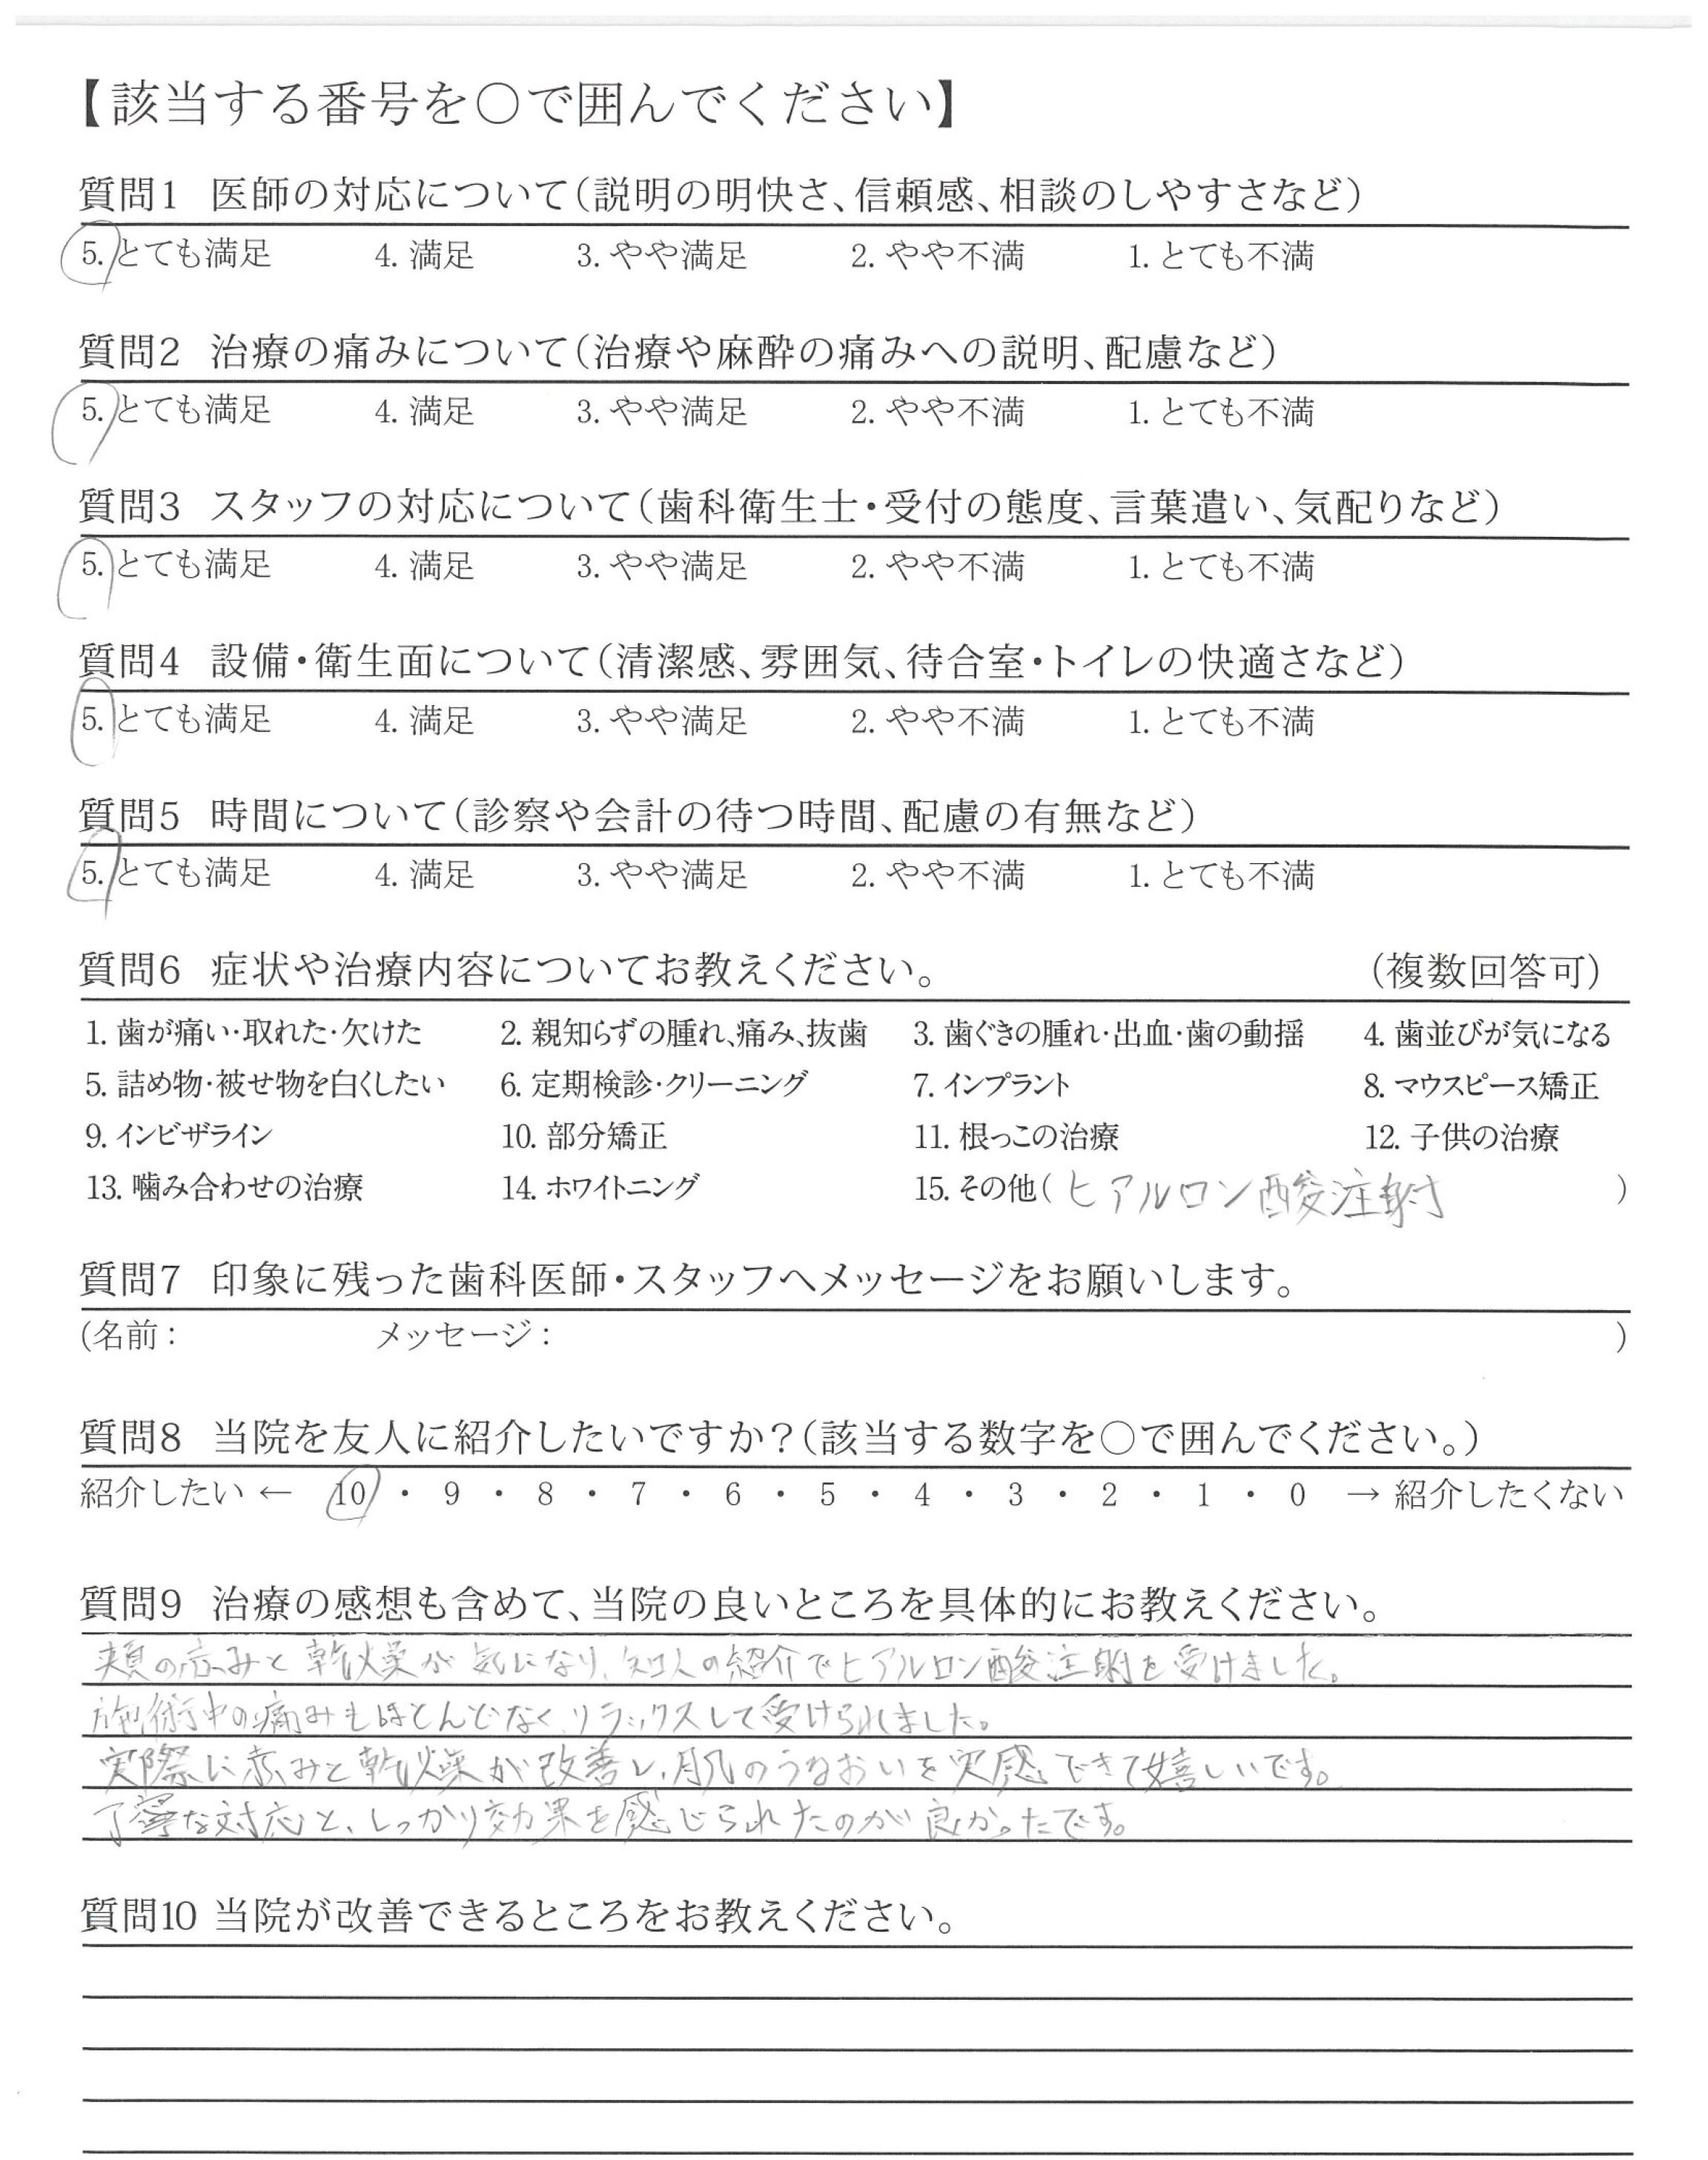 【該当する番号を○で囲んでください】
質問1 医師の対応について(説明の明快さ、信頼感、相談のしやすさなど)
5. とても満足 4. 満足 3. やや満足 2. やや不満 1. とても不満
質問2 治療の痛みについて(治療や麻酔の痛みへの説明、配慮など)
5. とても満足 4. 満足 3. やや満足 2. やや不満 1. とても不満
質問3 スタッフの対応について(歯科衛生士・受付の態度、言葉遣い、気配りなど)
5. とても満足 4. 満足 3. やや満足 2. やや不満 1. とても不満
質問4 設備・衛生面について(清潔感、雰囲気、待合室・トイレの快適さなど)
5. とても満足 4. 満足 3. やや満足 2. やや不満 1. とても不満
質問5 時間について(診察や会計の待つ時間、配慮の有無など)
5. とても満足 4. 満足 3. やや満足 2. やや不満 1. とても不満
質問6 症状や治療内容についてお教えください。 (複数回答可)
1. 歯が痛い・取れた・欠けた 2. 親知らずの腫れ、痛み、抜歯 3. 歯ぐきの腫れ・出血・歯の動揺 4. 歯並びが気になる
5. 詰め物・被せ物を白くしたい 6. 定期検診・クリーニング 7. インプラント 8. マウスピース矯正
9. インビザライン 10. 部分矯正 11. 根っこの治療 12. 子供の治療
13. 噛み合わせの治療 14. ホワイトニング 15. その他(ヒアルロン酸注射)
質問7 印象に残った歯科医師・スタッフへメッセージをお願いします。
(名前: メッセージ: )
質問8 当院を友人に紹介したいですか?(該当する数字を○で囲んでください。)
紹介したい ← 10 ・ 9 ・ 8 ・ 7 ・ 6 ・ 5 ・ 4 ・ 3 ・ 2 ・ 1 ・ 0 → 紹介したくない
質問9 治療の感想も含めて、当院の良いところを具体的にお教えください。
頬の赤みと乾燥が気になり、知人の紹介でヒアルロン酸注射を受けました。
施術中の痛みもほとんどなく、リラックスして受けられました。
実際に赤みと乾燥が改善し、肌のうるおいを実感できて嬉しいです。
丁寧な対応と、しっかり効果を感じられたのが良かったです。
質問10 当院が改善できるところをお教えください。